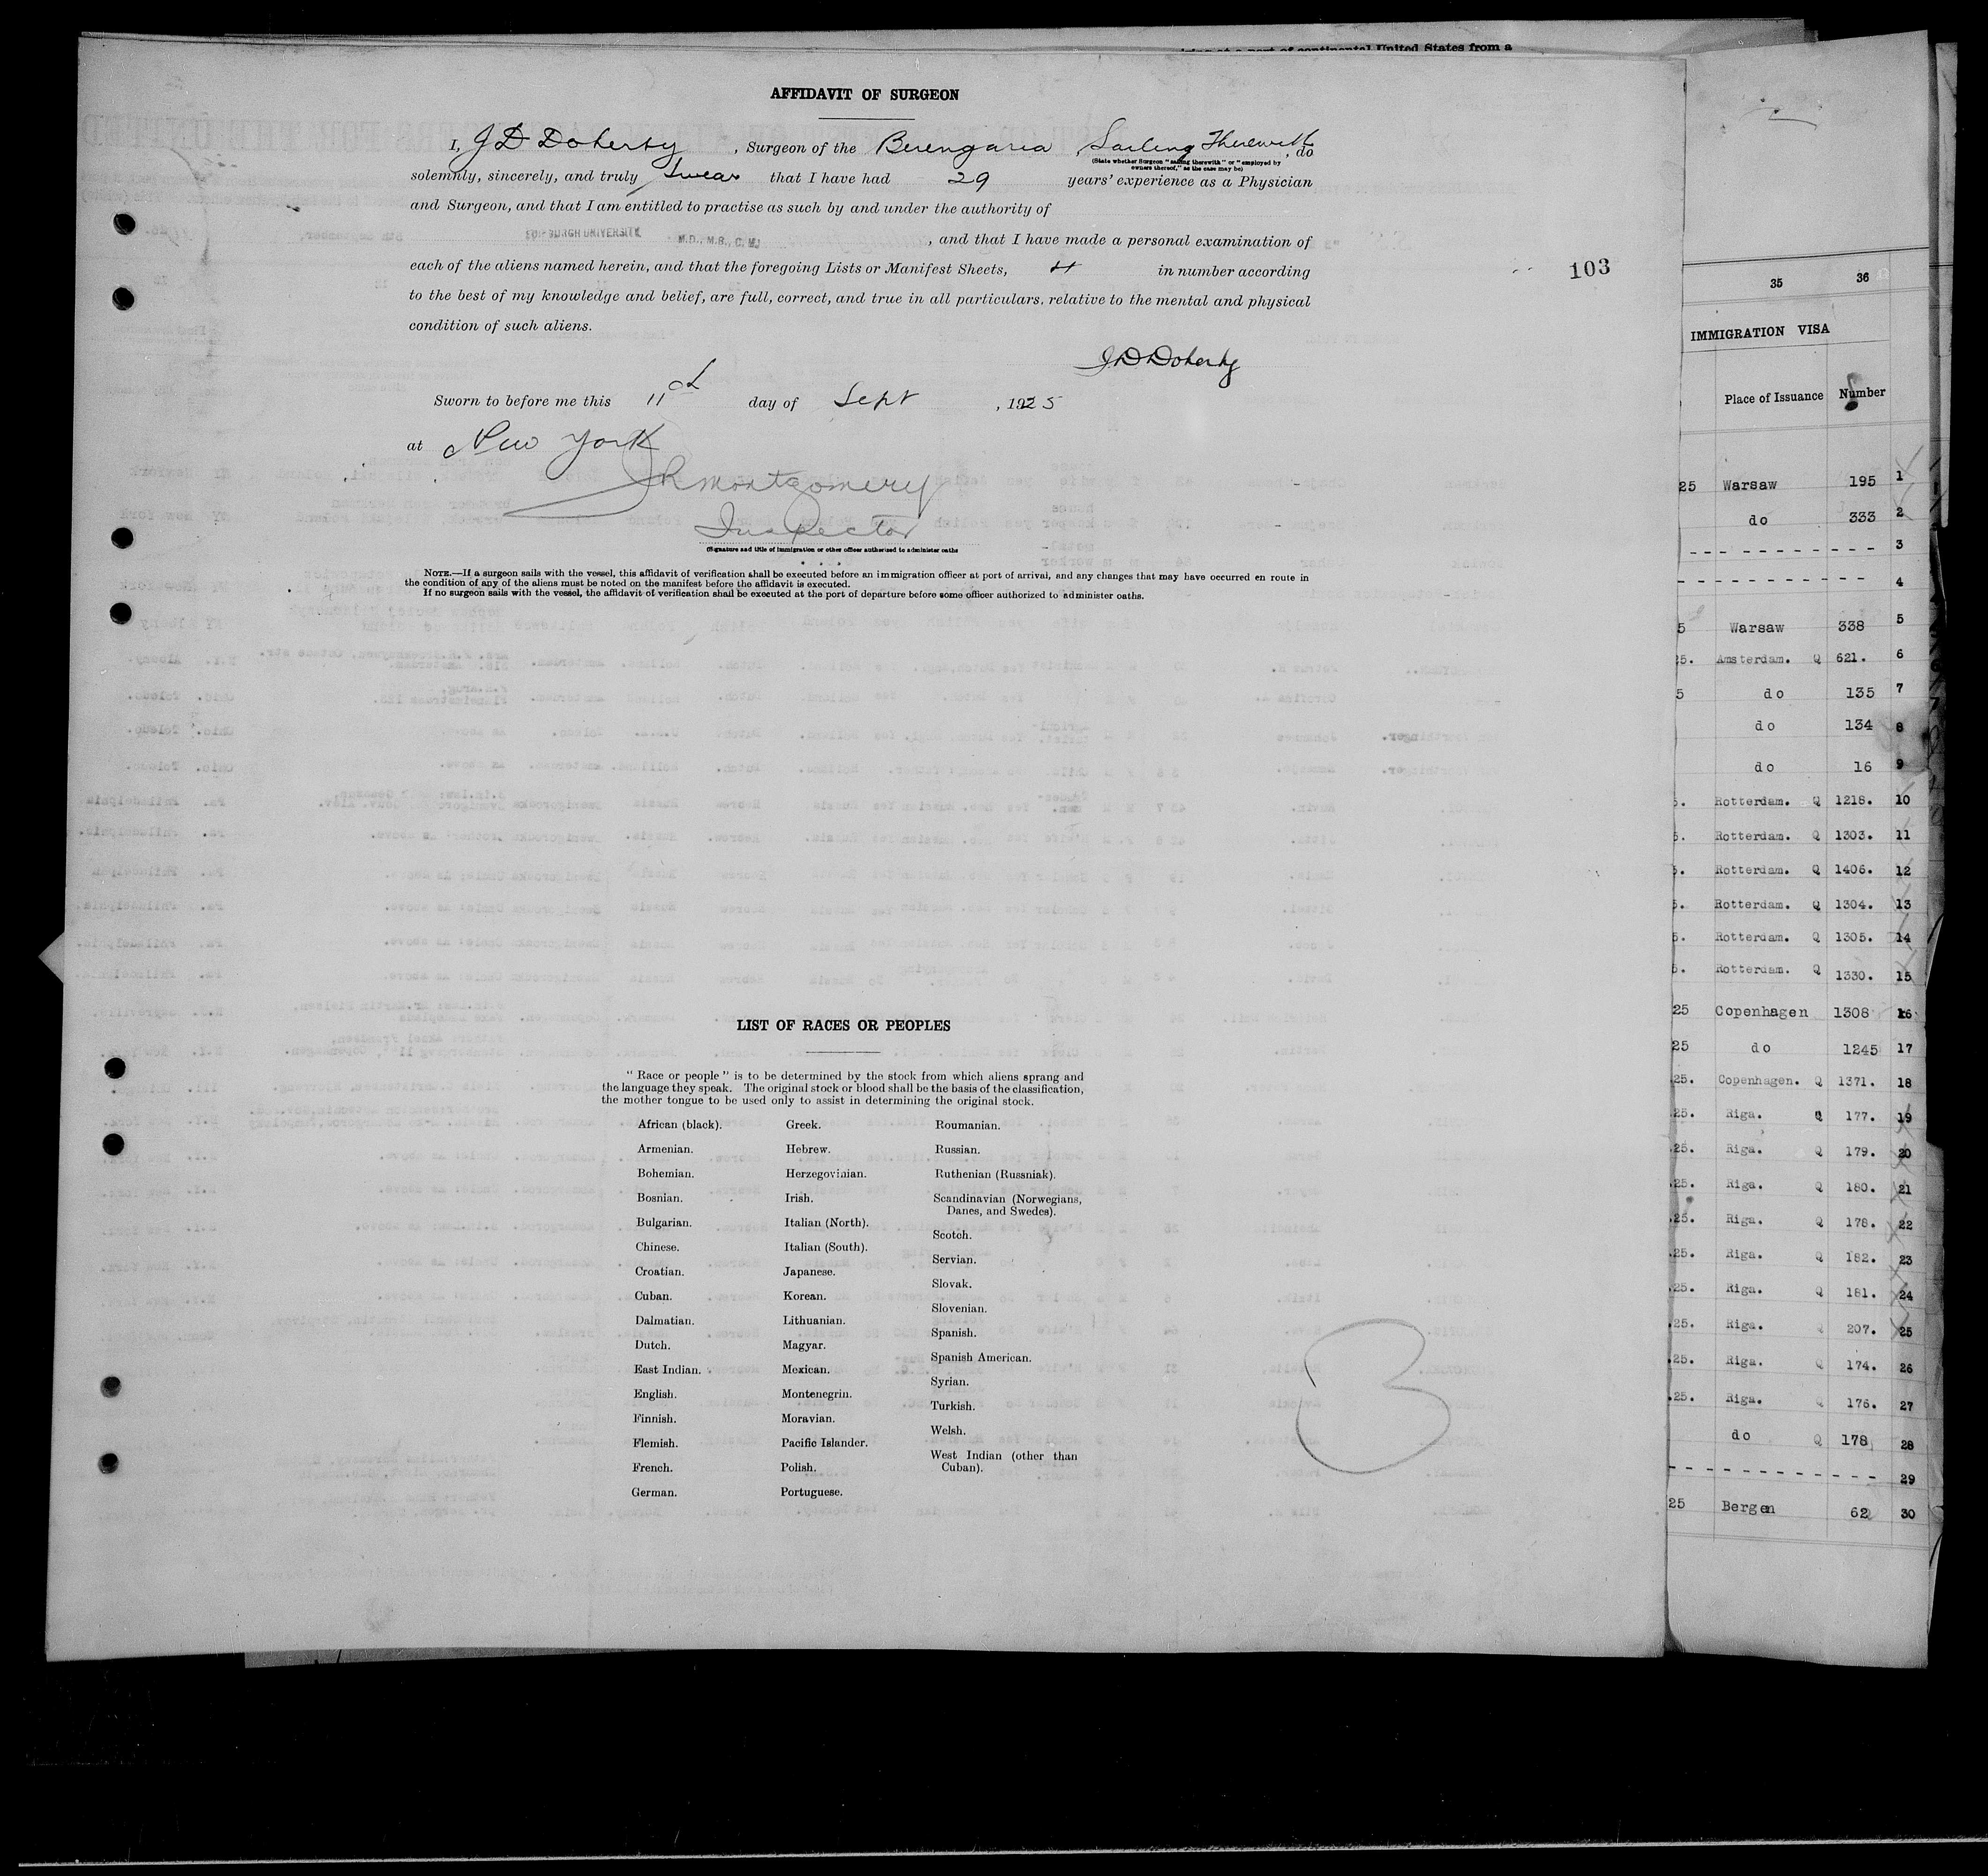 rising at a port of continental United States from a
AFFIDAVIT OF SURGEON
I, J D Doherty, Surgeon of the Berengaria, Sailing Therewith, do
(State whether Surgeon "sailing therewith" or "employed by
owners thereof," as the case may be)
solemnly, sincerely, and truly swear that I have had 29 years' experience as a Physician
and Surgeon, and that I am entitled to practise as such by and under the authority of
EDINBURGH UNIVERSITY. M.D., M.B., C.M., and that I have made a personal examination of
each of the aliens named herein, and that the foregoing Lists or Manifest Sheets, 4 in number according
to the best of my knowledge and belief, are full, correct, and true in all particulars, relative to the mental and physical
condition of such aliens.
103
J D Doherty
Sworn to before me this 11th day of Sept, 1925
at New York
J R Montgomery
Inspector
(Signature and title of immigration or other officer authorized to administer oaths
NOTE.—If a surgeon sails with the vessel, this affidavit of verification shall be executed before an immigration officer at port of arrival, and any changes that may have occurred en route in
the condition of any of the aliens must be noted on the manifest before the affidavit is executed.
If no surgeon sails with the vessel, the affidavit of verification shall be executed at the port of departure before some officer authorized to administer oaths.
LIST OF RACES OR PEOPLES
"Race or people" is to be determined by the stock from which aliens sprang and
the language they speak. The original stock or blood shall be the basis of the classification,
the mother tongue to be used only to assist in determining the original stock.
African (black).
Armenian.
Bohemian.
Bosnian.
Bulgarian.
Chinese.
Croatian.
Cuban.
Dalmatian.
Dutch.
East Indian.
English.
Finnish.
Flemish.
French.
German.
Greek.
Hebrew.
Herzegovinian.
Irish.
Italian (North).
Italian (South).
Japanese.
Korean.
Lithuanian.
Magyar.
Mexican.
Montenegrin.
Moravian.
Pacific Islander.
Polish.
Portuguese.
Roumanian.
Russian.
Ruthenian (Russniak).
Scandinavian (Norwegians,
Danes, and Swedes).
Scotch.
Servian.
Slovak.
Slovenian.
Spanish.
Spanish American.
Syrian.
Turkish.
Welsh.
West Indian (other than
Cuban).
3
35 36
IMMIGRATION VISA
Place of Issuance Number
25 Warsaw 195 1
do 333 2
3
4
5 Warsaw 338 5
25. Amsterdam. Q 621. 6
5 do 135 7
do 134 8
do 16 9
5. Rotterdam. Q 1218. 10
5. Rotterdam. Q 1303. 11
5. Rotterdam. Q 1406. 12
5. Rotterdam. Q 1304. 13
5. Rotterdam. Q 1305. 14
5. Rotterdam. Q 1330. 15
25 Copenhagen 1308 16
25 do 1245 17
25. Copenhagen. Q 1371. 18
25. Riga. Q 177. 19
.25. Riga. Q 179. 20
.25. Riga. Q 180. 21
.25. Riga. Q 178. 22
.25. Riga. Q 182. 23
.25. Riga. Q 181. 24
.25. Riga. Q 207. 25
.25. Riga. Q 174. 26
.25. Riga. Q 176. 27
do Q 178 28
29
25 Bergen 62 30